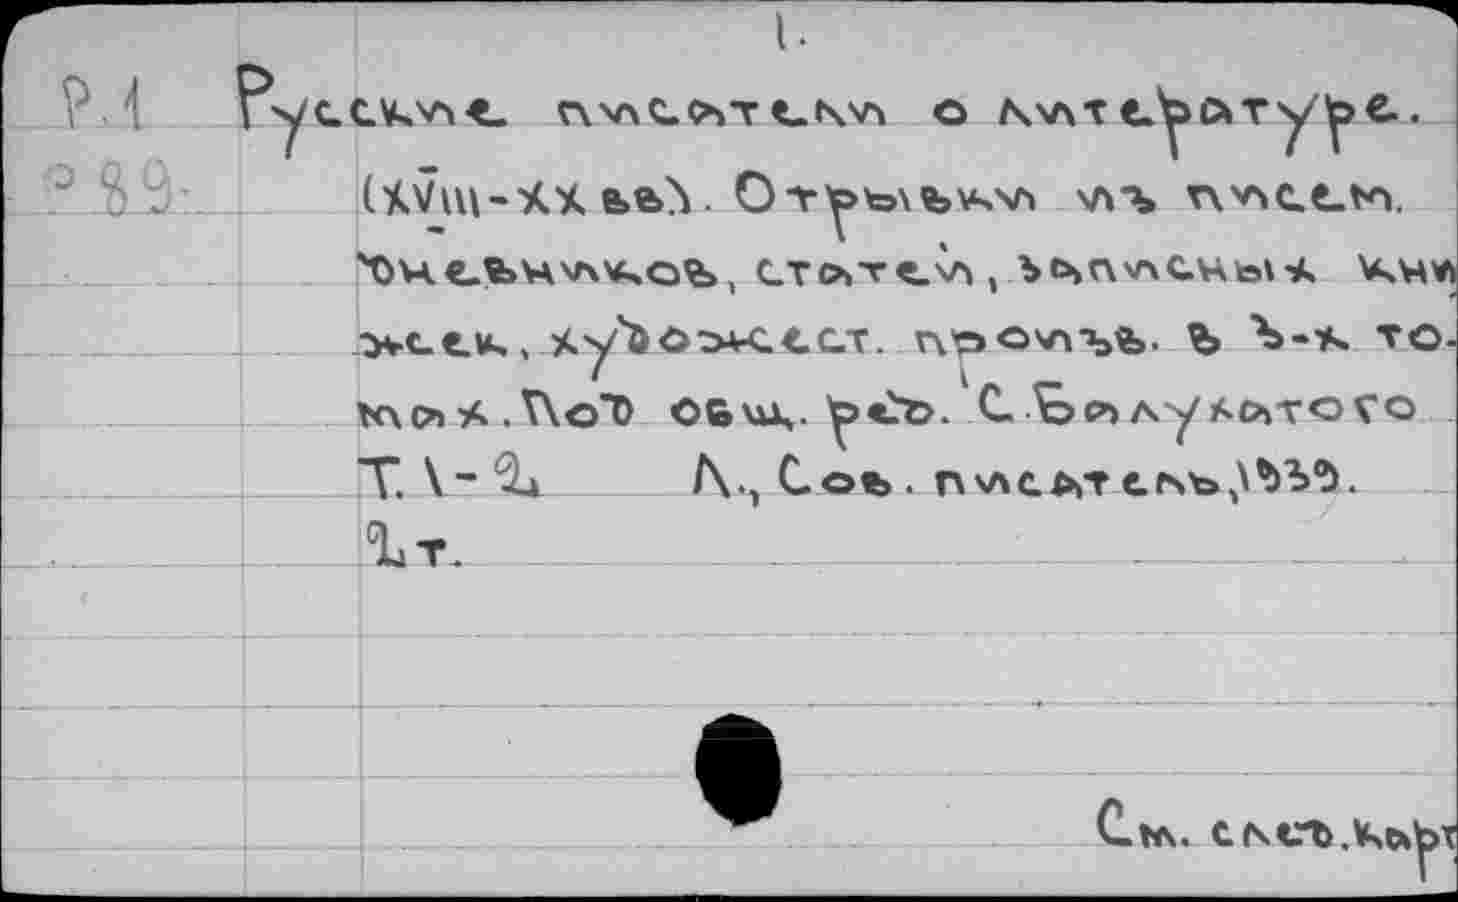 1.
Р.1 Русские писатели о литературе.
Р89 (XVIII-XX вв.). Отрывки из писем,
дневников, статей, записных кни
жек, художест. произв. В 3-х то-
мах. Под общ. ред. С. Балухатого
Т. 1-2 Л., Сов. писатель, 1939.
2 т.
См. след. карт